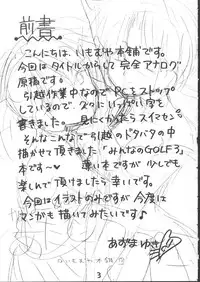 前書
こんにちは、いもむや本舗です。
今回はタイトルからして完全アナログ
原稿です。
引越作業中なので PCをストップ
しているので、スクにいっぱい字を
書きました。 見にくかったらスイマセン
そんなこんなで引越のドタバタの中
描かせて頂きました「みんなのGOLF3」
本です〜 薄い本ですが少しでも
楽しんで頂けましたら幸いです。
今回はイラストのみですが今度は
マンガも描いてみたいです♪
あずまゆき
いもむや本舗
3